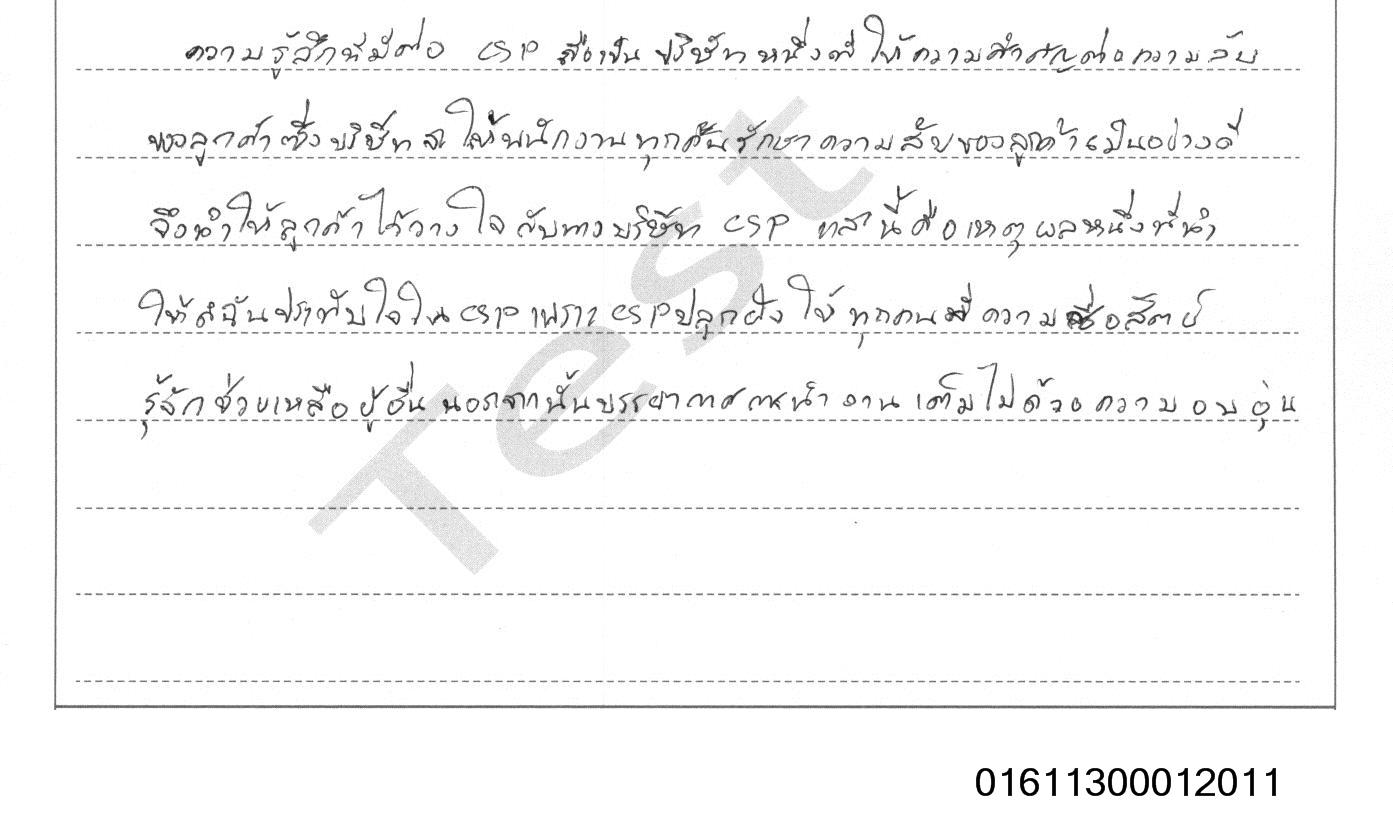 ความรู้สึกที่มีต่อ CSP คือเป็นบริษัทหนึ่งที่ให้ความสำคัญต่อความลับ
ของลูกค้าซึ่งบริษัทจะให้พนักงานทุกคนรักษาความลับของลูกค้าเป็นอย่างดี
จึงทำให้ลูกค้าไว้วางใจกับทางบริษัท CSP และนี้คือเหตุผลหนึ่งที่ทำ
ให้ดิฉันประทับใจใน CSP เพราะ CSP ปลูกฝังให้ทุกคนมีความซื่อสัตย์
รู้จักช่วยเหลือผู้อื่นนอกจากนั้นบรรยากาศการทำงานเต็มไปด้วยความอบอุ่น
Test
01611300012011